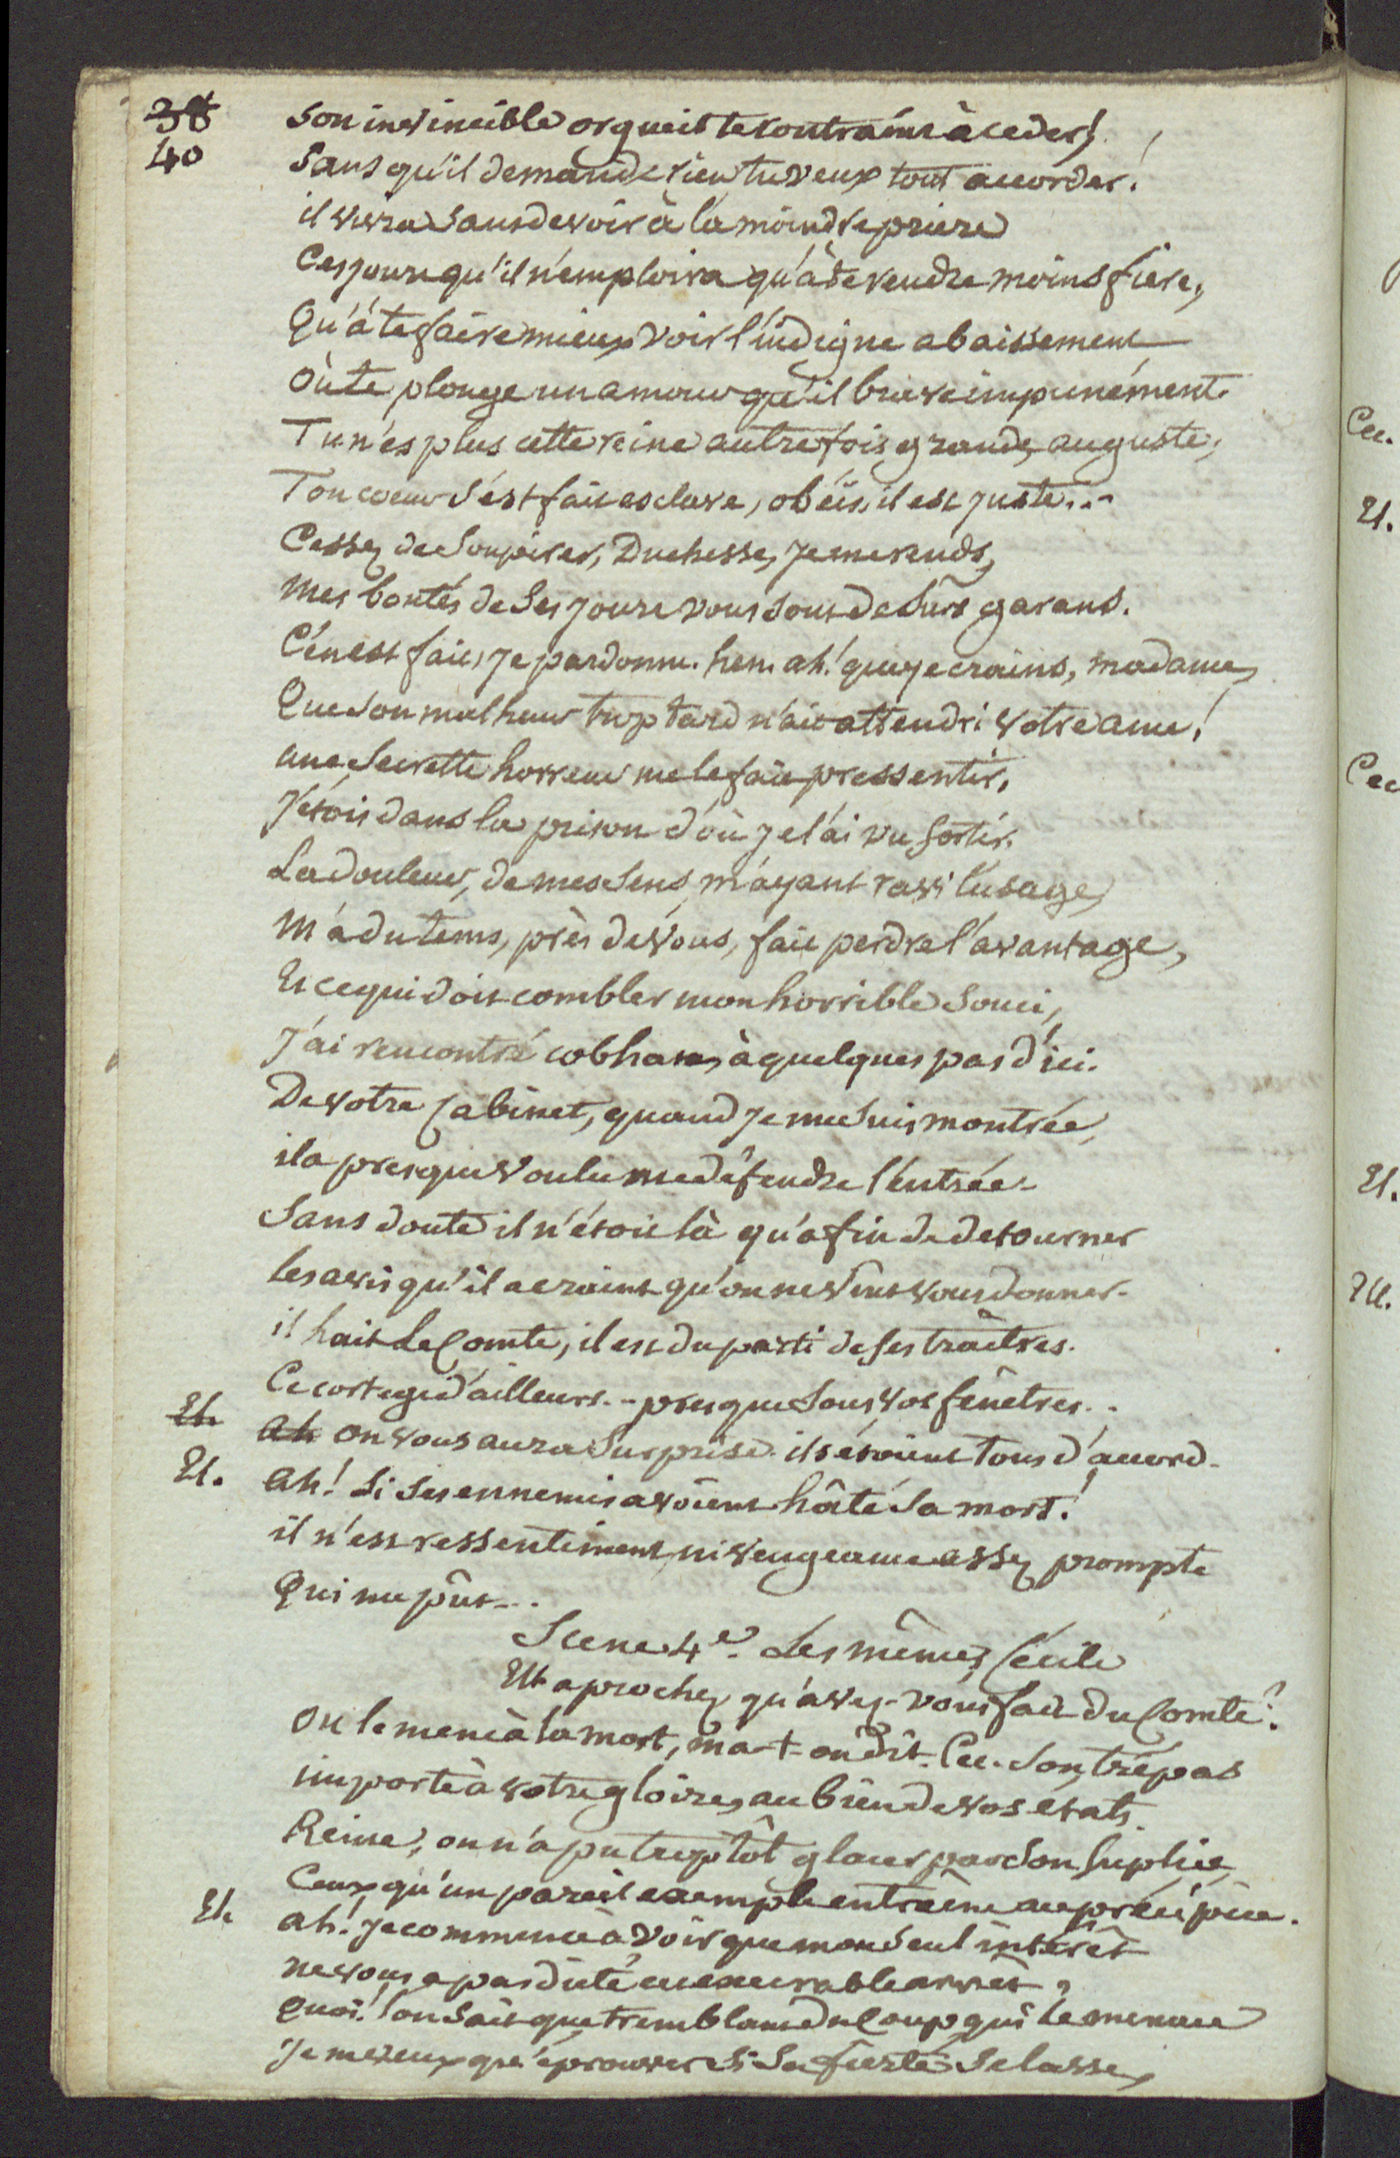 38
40
Son invincible orgueil te contraint à ceder,
Sans qu'il demande rien tu veux tout accorder!
il vivra sans devoir à la moindre priere
Ces jours qu'il n'emploira qu'à te rendre moins fiere,
Qu'à te faire mieux voir l'indigne abaissement
Où te plonge un amour qu'il brave impunément.
Tu n'es plus cette reine autrefois grande, auguste,
Ton coeur s'est fait esclave, obéis, il est juste...
Cessez de Soupirer, Duchesse, Je me rends,
Mes bontés de Ses jours vous sont de Sûrs garans.
C'en est fait, Je pardonne. hen. ah! que je crains, madame,
Que Son malheur trop tard n'ait attendri votre ame!
une Secrette horreur me le fait pressentir,
J'étois dans la prison d'où je l'ai vu Sortir.
La douleur, de mes Sens m'ayant ravi l'usage,
M'a du tems, près de Vous, fait perdre l'avantage,
Et ce qui doit combler mon horrible Souci,
J'ai rencontré cobham à quelques pas d'ici.
De votre Cabinet, quand Je me Suis montrée,
il a presque Voulu me défendre l'entrée.
Sans doute il n'étoit là qu'afin de detourner
les avis qu'il a craint qu'on ne Vint vous donner.
il hait le Comte, il est du parti de Ses traîtres.
Ce cortege d'ailleurs... presque Sous vos fenêtres..
El. Ah On vous aura Surprise. ils étoient tous d'accord.
El. Ah! Si Ses ennemis avoient hâté Sa mort!
il n'est ressentiment, ni vengeance assez prompte
Qui me pût...
Scene 4e. Les mêmes, Cécile
El aprochez, qu'avez-vous fait du Comte?
On le mene à la mort, m'a-t-on dit. Cec. Son trépas
importe à votre gloire, au bien de vos etats.
Reine, on n'a pu trop tôt glacer par Son Suplice
Ceux qu'un pareil exemple entraîne au précipice.
El. ah! Je commence à Voir que mon Seul intérêt
ne vous a pas dicté cet execrable arrêt,
Quoi! l'on Sait que tremblante du Coup qui le menace
Je ne veux qu'éprouver Si Sa fierté Se lasse,
Cec.
El.
Cec
El.